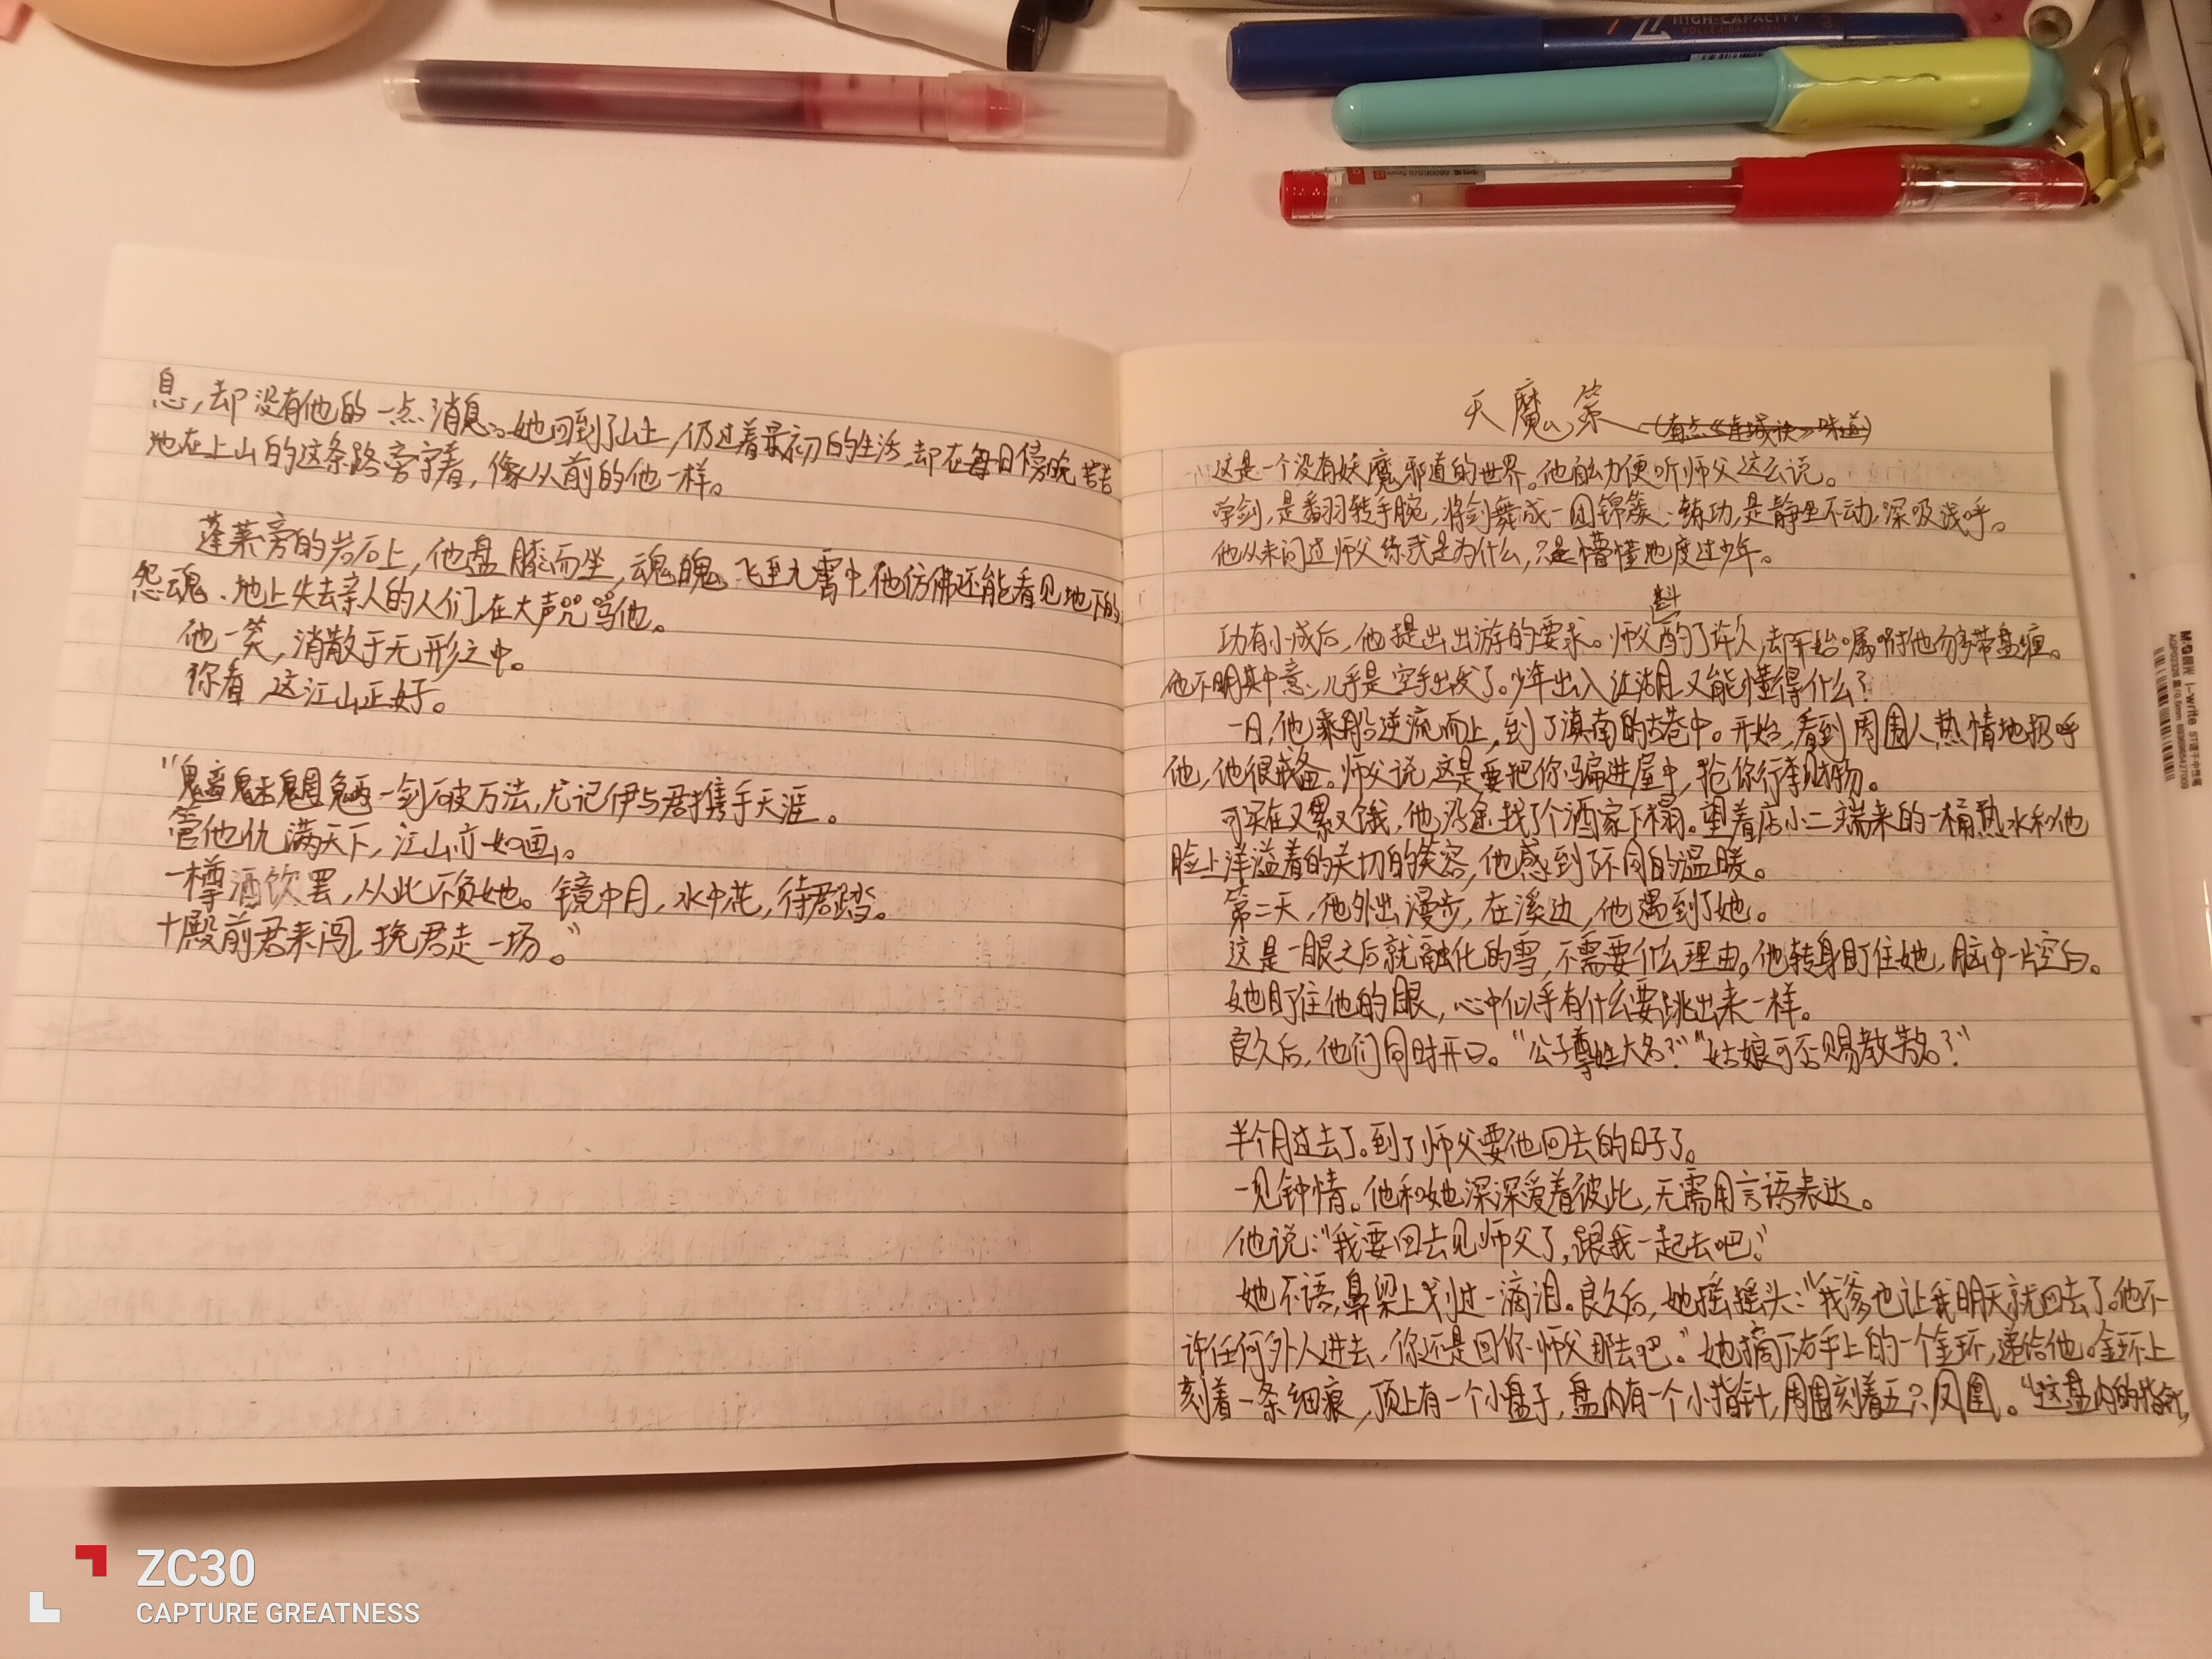 HIGH-CAPACITY
息,却没有他的一点消息。她回到了山上,仍过着最初的生活,却在每日傍晚苦苦
地在上山的这条路旁守着,像从前的他一样。
蓬莱旁的岩石上,他盘膝而坐,魂魄飞至九霄中,他仿佛还能看见地下的
怨魂、地上失去亲人的人们在大声咒骂他。
他一笑,消散于无形之中。
你看,这江山正好。
“魑魅魍魉一剑破万法,尤记伊与君携手天涯。
管他仇满天下,江山亦如画。
一樽酒饮罢,从此不负她。镜中月,水中花,待君踏。
十殿前君来闯,挽君走一场。”
天魔策
(有点《连城诀》味道)
这是一个没有妖魔邪道的世界。他自幼便听师父这么说。
学剑,是翻转手腕,将剑舞成一团锦簇;练功,是静坐不动,深吸浅呼。
他从未问过师父练武是为什么,只是懵懂地度过少年。
功有小成后,他提出出游的要求。师父斟酌了许久,却开始嘱咐他勿多带盘缠。
他不明其中意,几乎是空手出发了。少年出入江湖,又能懂得什么?
一日,他乘船逆流而上,到了滇南的古巷中。开始,看到周围人热情地招呼
他,他很戒备。师父说,这是要把你骗进屋中,抢你行李财物。
可实在又累又饿,他没急找了个酒家下榻。望着店小二端来的一桶热水和他
脸上洋溢着的关切的笑容,他感到了不同的温暖。
第二天,他外出漫步,在溪边,他遇到了她。
这是一眼之后就融化的雪,不需要什么理由。他转身盯住她,脑中一片空白。
她盯住他的眼,心中似乎有什么要跳出来一样。
良久后,他们同时开口。“公子尊姓大名?”“姑娘可否赐教芳名?”
半个月过去了。到了师父要他回去的日子了。
一见钟情。他和她深深爱着彼此,无需用言语表达。
他说:“我要回去见师父了,跟我一起去吧。”
她不语,鼻梁上划过一滴泪。良久后,她摇摇头:“我爹也让我明天就回去了。他不
许任何外人进去,你还是回你师父那去吧。”她摘下右手上的一个金环,递给他。金环上
刻着一条细痕,顶上有一个小盘子,盘内有一个小指针,周围刻着五只凤凰。“这盘内的指针,
M&G 晨光 i-write
ZC30
CAPTURE GREATNESS